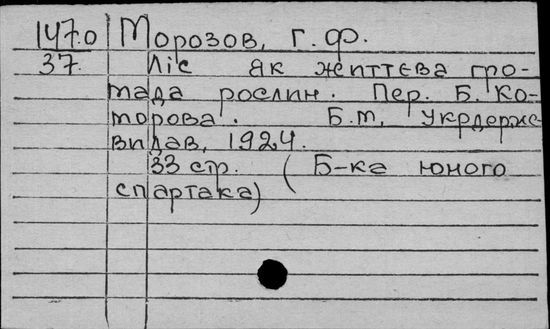 1470 Морозов, Г. Ф.
37. Ліс як життєва гро-
мада рослин. Пер. Б. Ко-
морова. Б.м, Укрдерже
видав, 1924.
33 стр. (Б-ка юного
спартака)